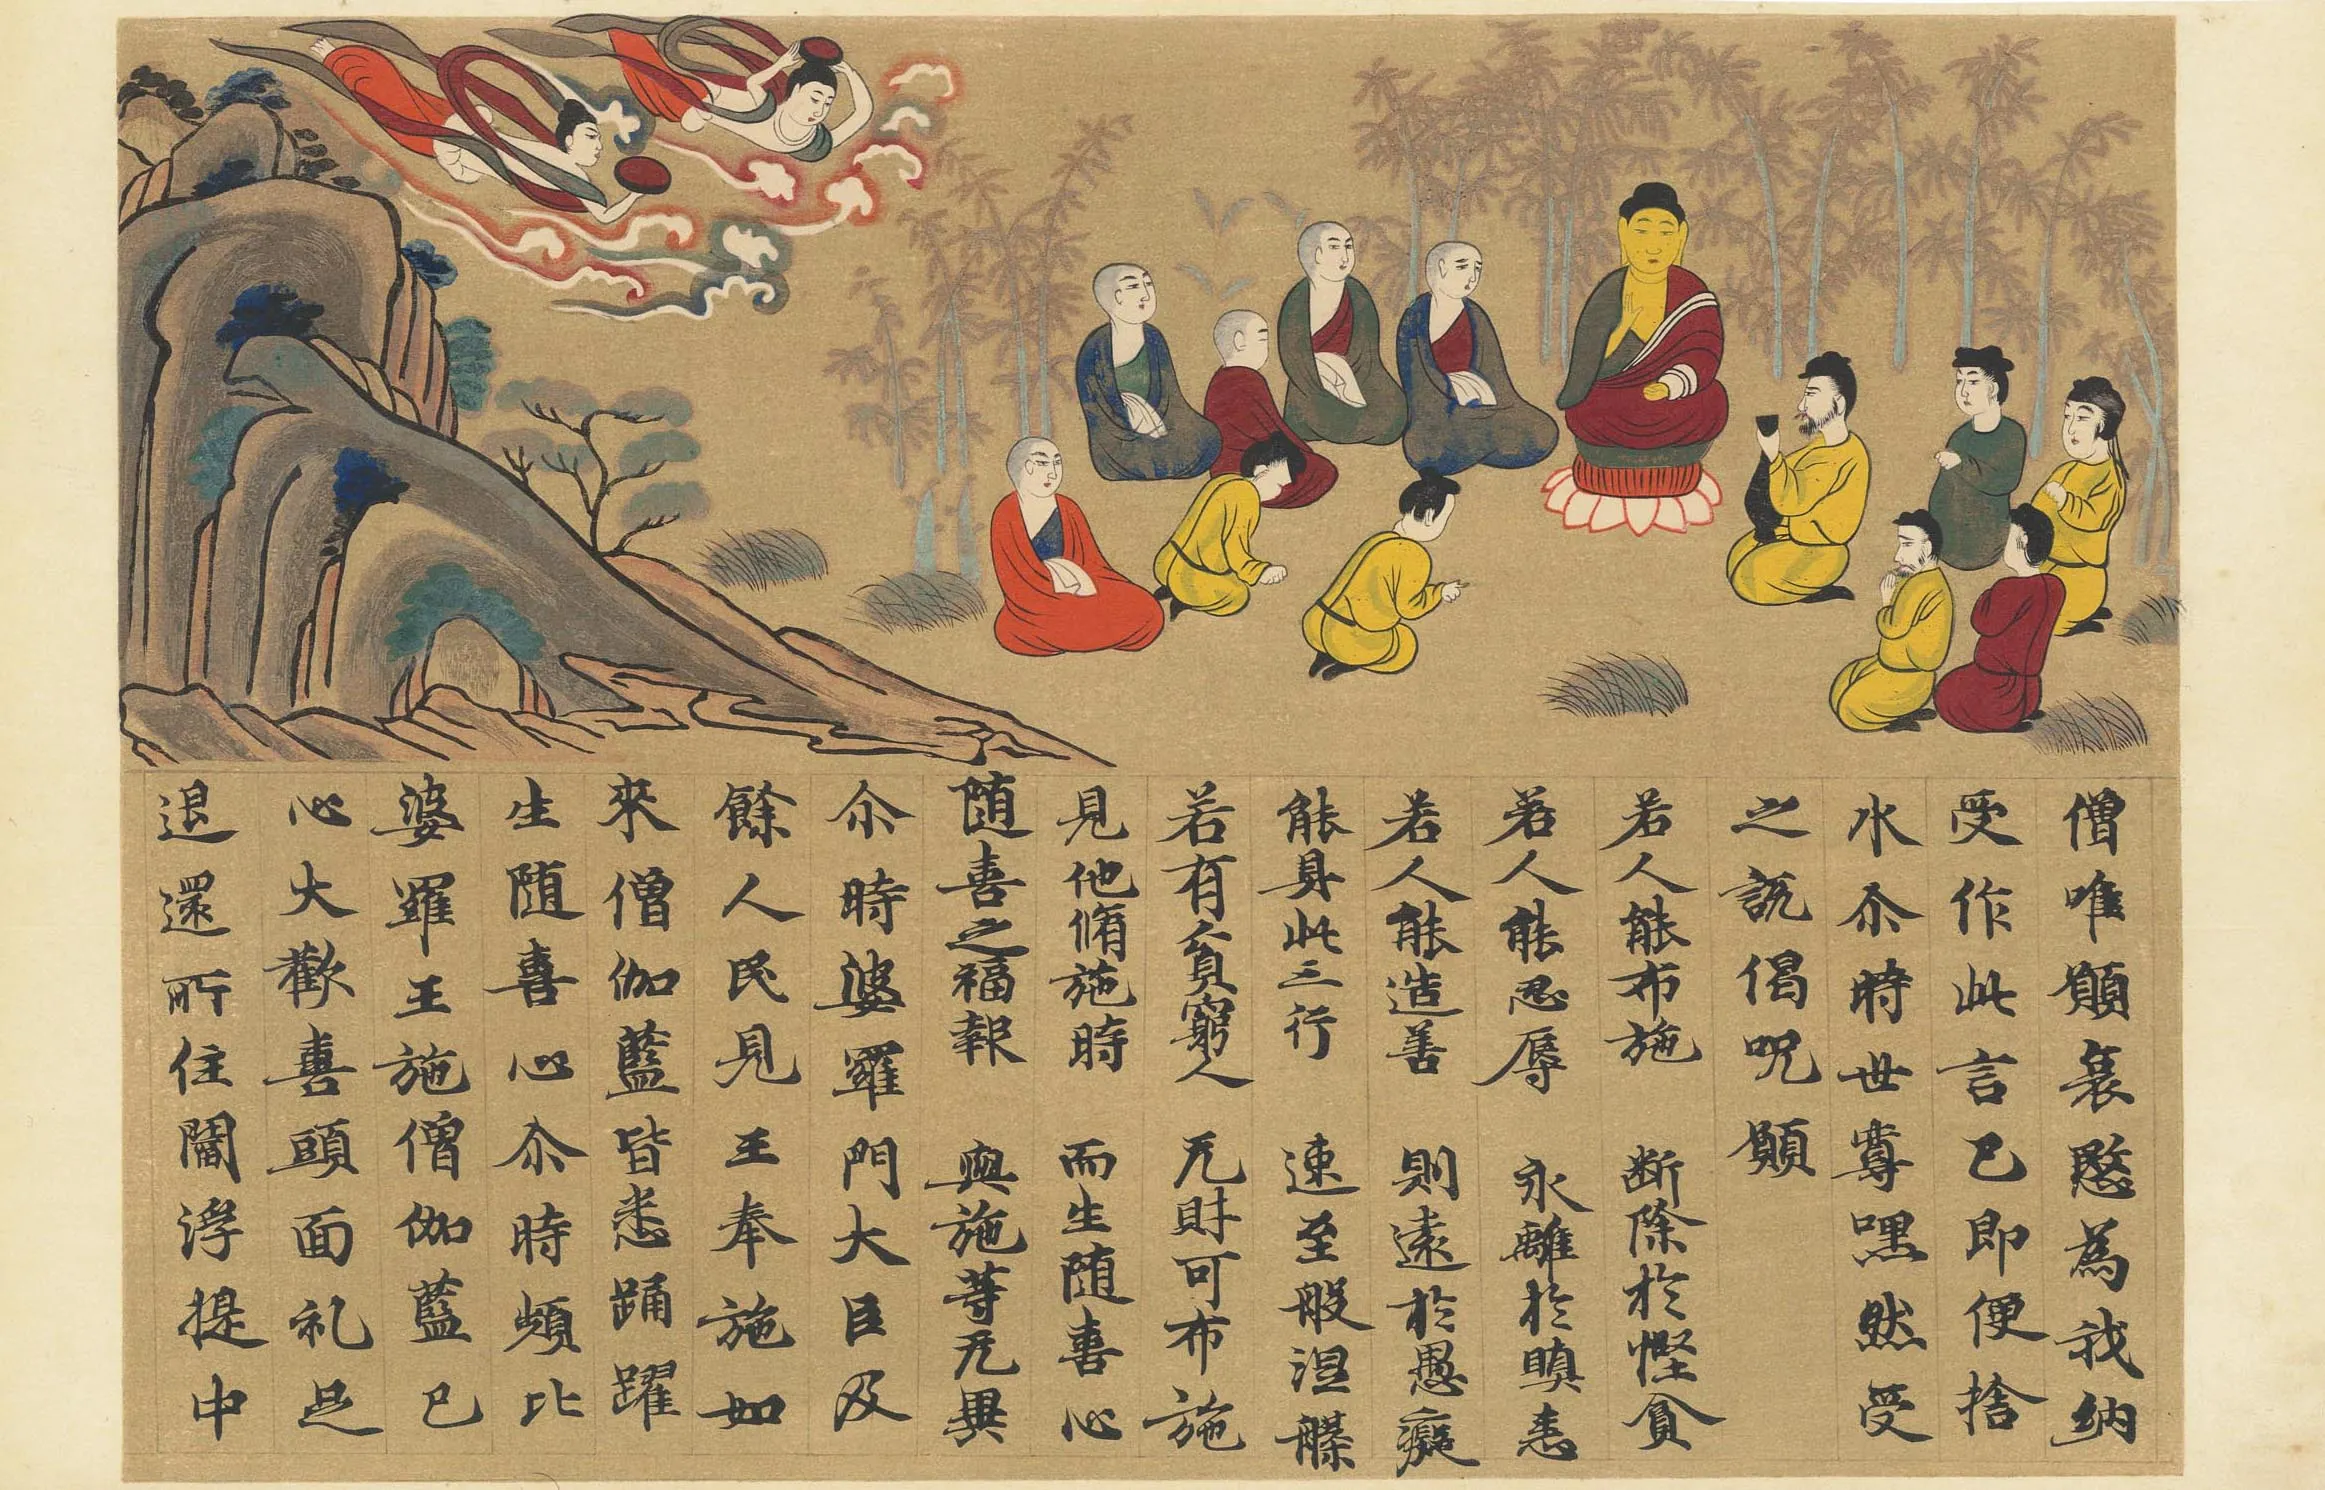 僧唯願哀愍為我納
受作此言已即便捨
水尒時世尊嘿然受
之說偈呪願
若人能布施　断除於慳貪
若人能忍辱　永離於瞋恚
若人能造善　則遠於愚癡
能具此三行　速至般涅槃
若有貧窮人　无財可布施
見他脩施時　而生随喜心
随喜之福報　與施等无異
尒時婆羅門大臣及
餘人民見王奉施如
來僧伽藍皆悉踊躍
生随喜心尒時頻比
婆羅王施僧伽藍已
心大歡喜頭面礼足
退還所住閻浮提中